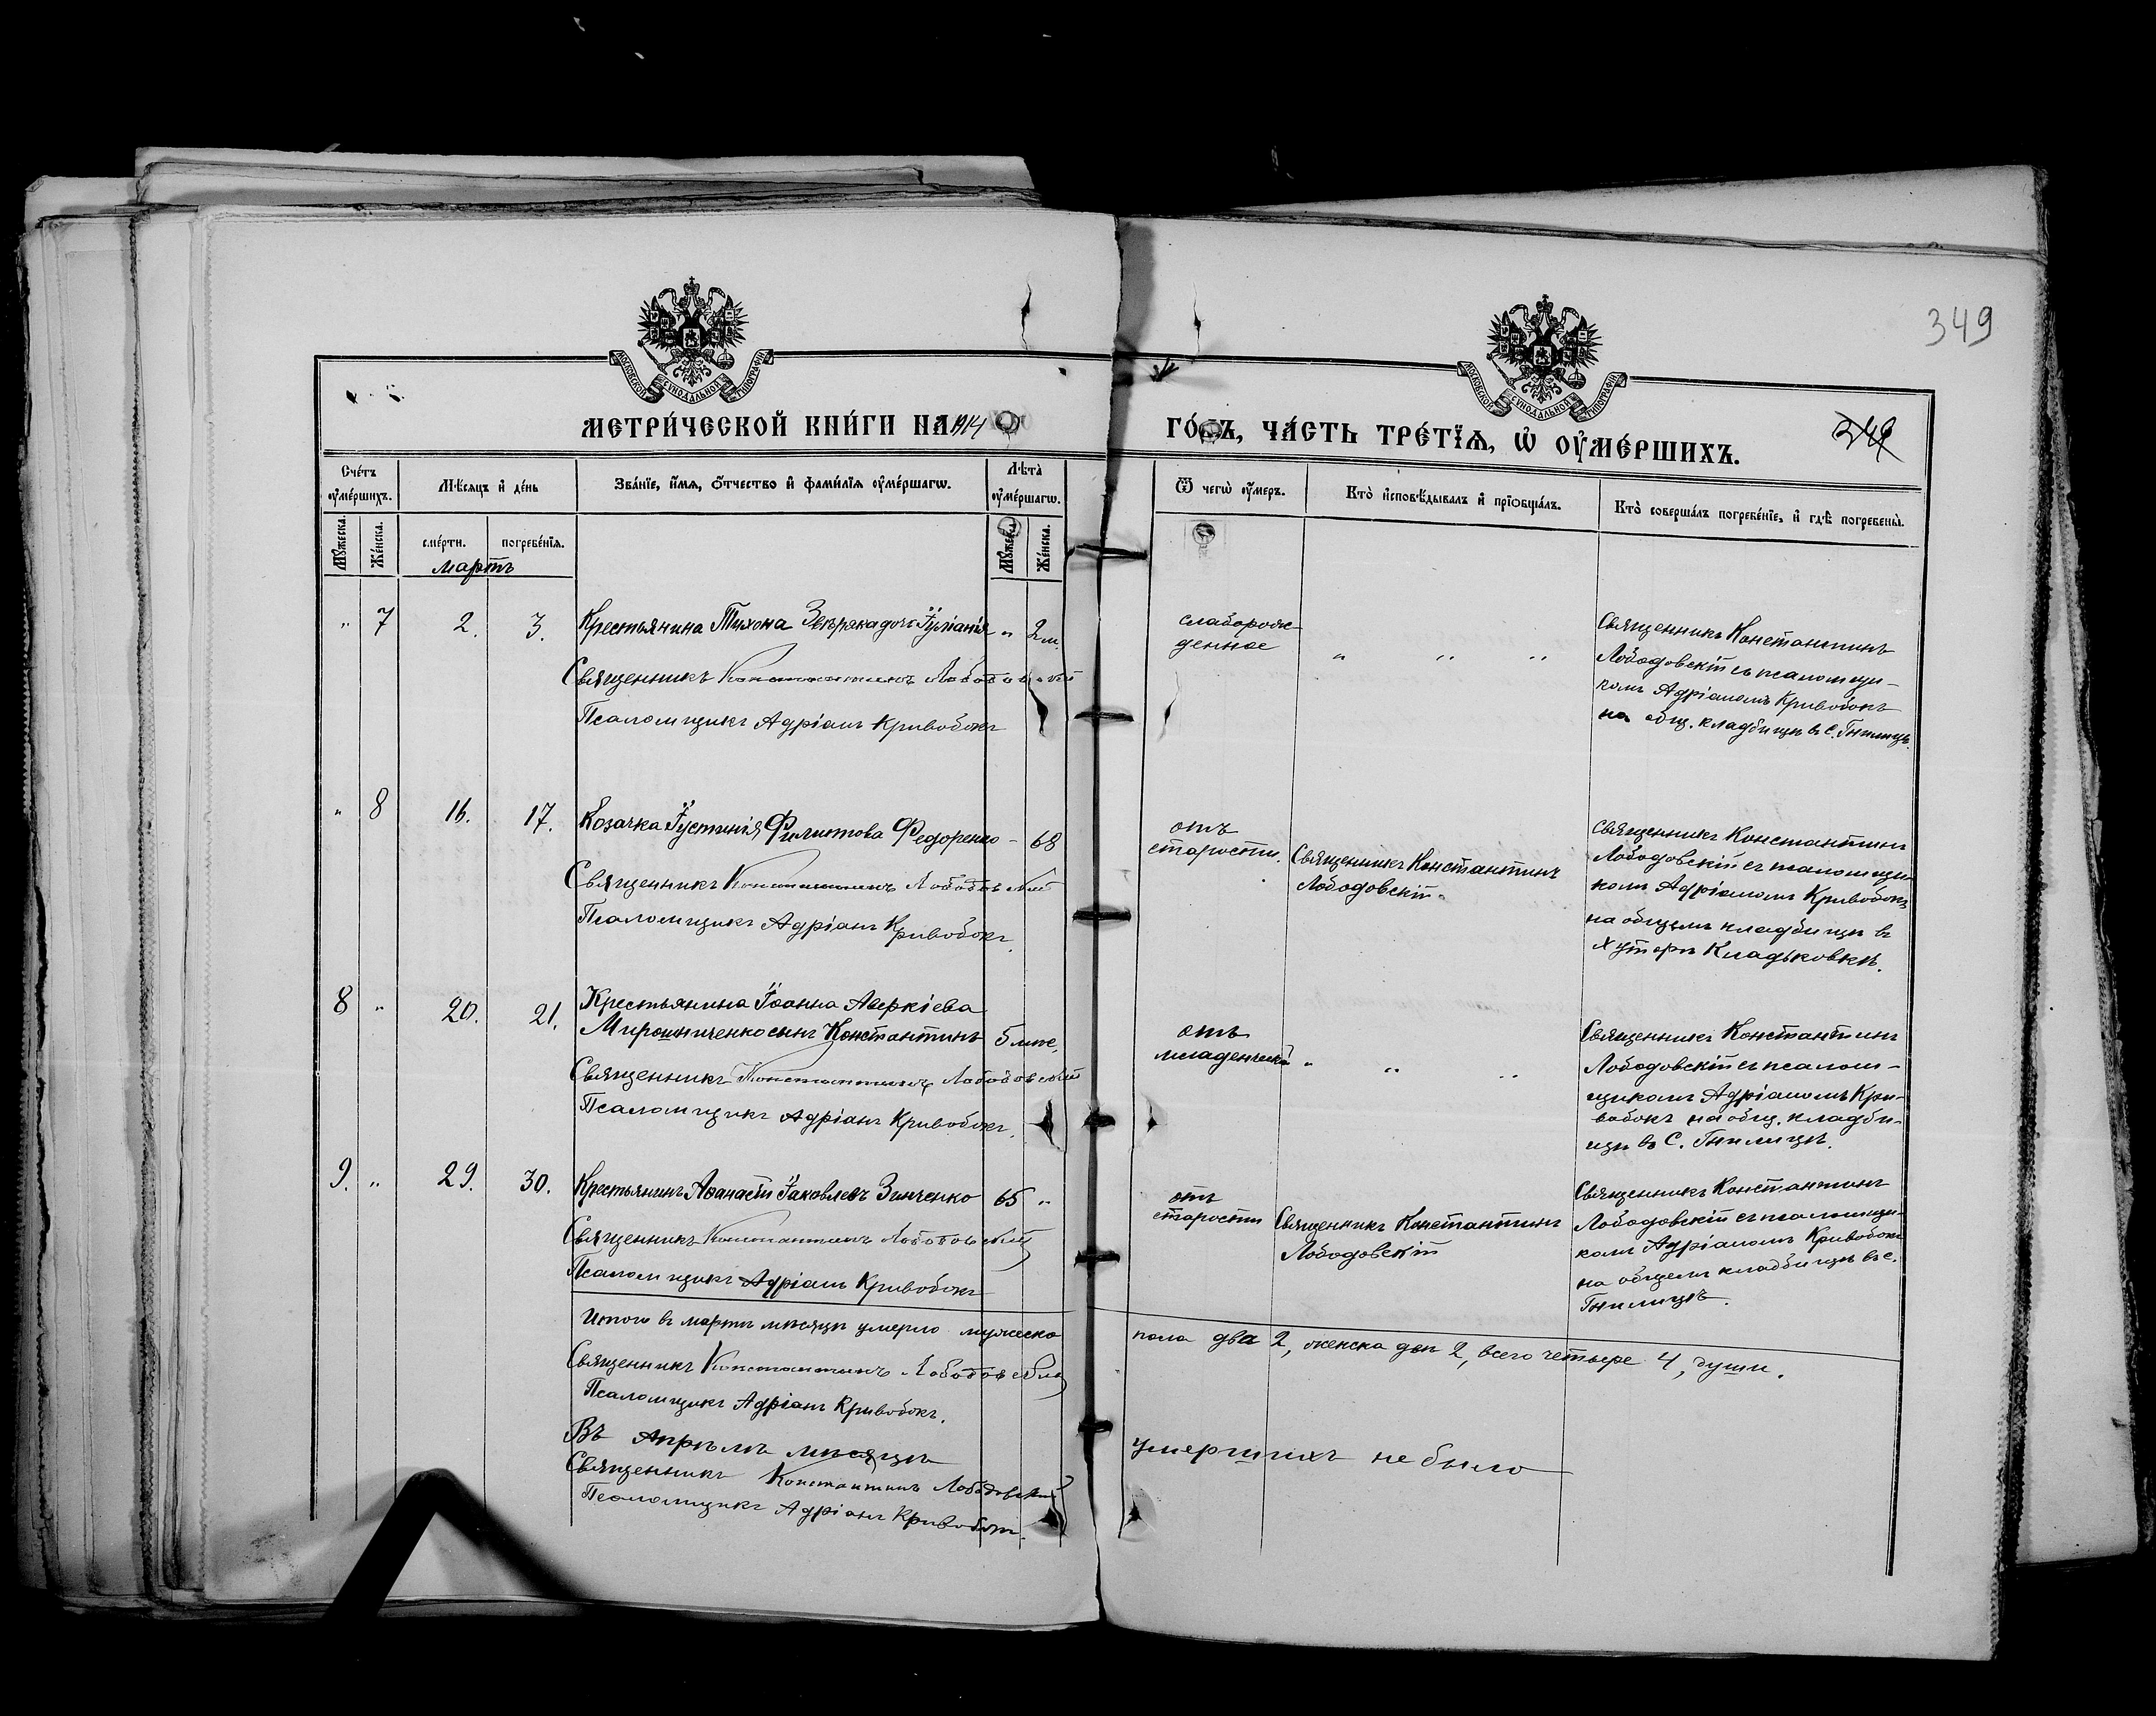 349
МОСКОВСКОЙ СѴНОДАЛЬНОЙ ТИПОГРАФІИ
МОСКОВСКОЙ СѴНОДАЛЬНОЙ ТИПОГРАФІИ
МЕТРИ́ЧЕСКОЙ КНИ́ГИ НА 1914 ГО́ДЪ, ЧА́СТЬ ТРЕ́ТЇѦ, Ѡ҆ ОУ҆МЕ́РШИХЪ.
349
Сче́тъ оу҆ме́ршихъ.
Мѣ́сяцъ и҆ де́нь
Зва́нїе, и҆́мѧ, ѻ҆́тчество и҆ фами́лїѧ оу҆ме́ршагѡ.
Лѣ́та̀ оу҆ме́ршагѡ.
Ѿ чегѡ̀ оу҆́меръ.
Кто̀ и҆сповѣ́дывалъ и҆ прїѻбща́лъ.
Кто̀ соверша́лъ погребе́нїе, и҆ гдѣ̀ погребены̀.
Мꙋ́жеска.
Же́нска.
сме́рти.
погребе́нїѧ.
Мꙋ́жеска.
Же́нска.
мартъ
" 7 2. 3. Крестьянина Тихона дочь Іуліанія " 2 м.
Священникъ Константинъ Лободовскій
Псаломщикъ Адріанъ Кривобокъ
слаборож-
денное
" " "
Священникъ Константинъ
Лободовскій съ псаломщи-
комъ Адріаномъ Кривобокъ
на общ. кладбищѣ в с. Гнилицѣ.
" 8 16. 17. Козачка Іустинія Филиппова Федоренко - 68
Священникъ Константинъ Лободовскій
Псаломщикъ Адріанъ Кривобокъ.
отъ
старости.
Священникъ Константинъ
Лободовскій.
Священникъ Константинъ
Лободовскій съ псаломщи-
комъ Адріаномъ Кривобокъ
на общемъ кладбищѣ въ
хуторѣ Кладьковкѣ.
8 " 20. 21. Крестьянина Іоанна Аверкіева
Мирошниченко сынъ Константинъ 5 мѣс.
Священникъ Константинъ Лободовскій
Псаломщикъ Адріанъ Кривобокъ.
отъ
младенческой
" " "
Священникъ Константинъ
Лободовскій съ псалом-
щикомъ Адріаномъ Кри-
вобокъ на общ. кладби-
щѣ въ с. Гнилицѣ.
9. " 29. 30. Крестьянинъ Аѳанасій Іаковлевъ Зинченко 65 "
Священникъ Константинъ Лободовскій
Псаломщикъ Адріанъ Кривобокъ
отъ
старости
Священникъ Константинъ
Лободовскій
Священникъ Константинъ
Лободовскій съ псаломщи-
комъ Адріаномъ Кривобокъ
на общемъ кладбищѣ въ с.
Гнилицѣ.
Итого въ мартѣ мѣсяцѣ умерло мужеска пола два 2, женска двѣ 2, всего четыре 4, души.
Священникъ Константинъ Лободовскій
Псаломщикъ Адріанъ Кривобокъ.
Въ Апрѣлѣ мѣсяцѣ умершихъ не было
Священникъ Константинъ Лободовскій
Псаломщикъ Адріанъ Кривобокъ.